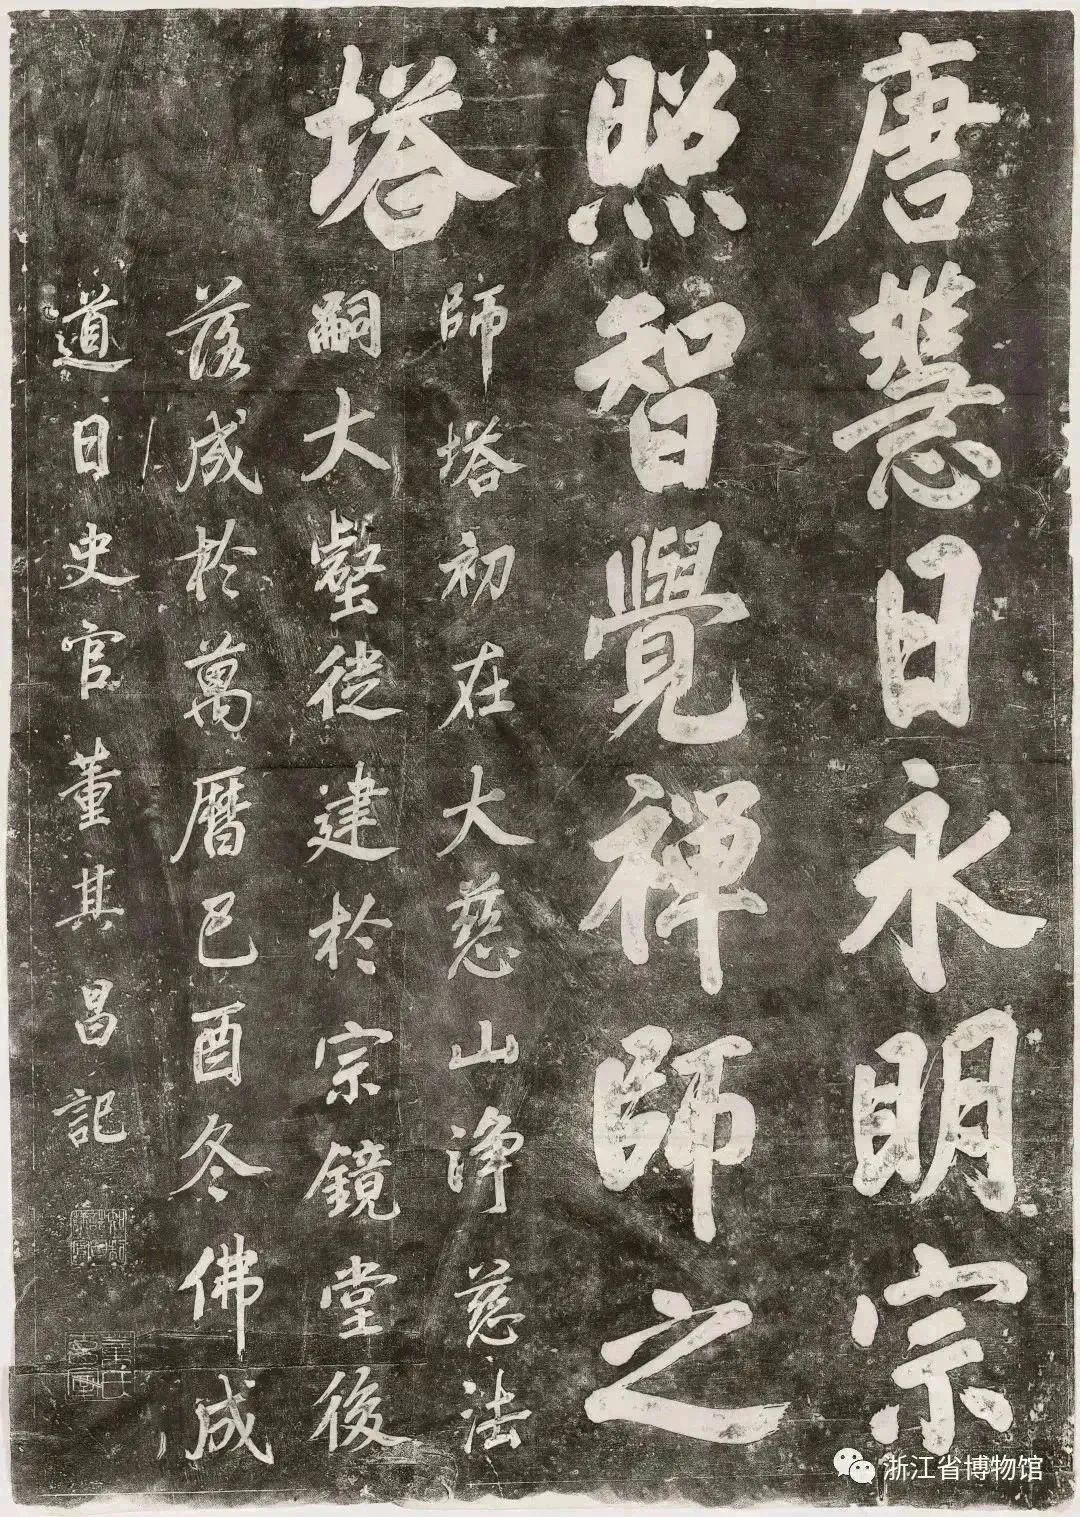 唐慧日永明宗
照智覺禪師之
塔
師塔初在大慈山淨慈法
嗣大壑徙建於宗鏡堂後
落成於萬曆己酉冬佛成
道日史官董其昌記
浙江省博物馆